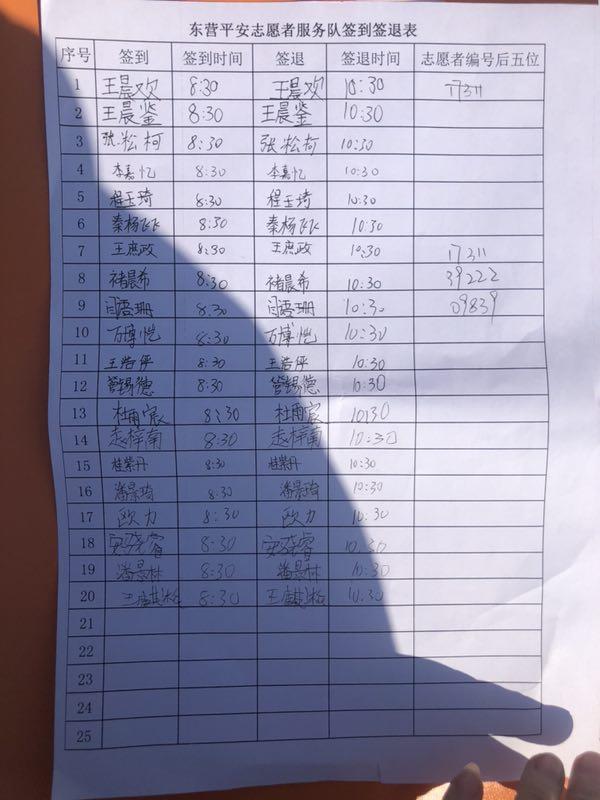 东营平安志愿者服务队签到签退表
序号 签到 签到时间 签退 签退时间 志愿者编号后五位
1 王晨欢 8:30 王晨欢 10:30 17311
2 王晨鉴 8:30 王晨鉴 10:30
3 张松柯 8:30 张松柯 10:30
4 李嘉忆 8:30 李嘉忆 10:30
5 程玉琦 8:30 程玉琦 10:30
6 秦杨飞飞 8:30 秦杨飞飞 10:30
7 王庶政 8:30 王庶政 10:30 17311
8 褚晨希 8:30 褚晨希 10:30 39222
9 闫语珊 8:30 闫语珊 10:30 09839
10 万博恺 8:30 万博恺 10:30
11 王浩伊 8:30 王浩伊 10:30
12 管锡德 8:30 管锡德 10:30
13 杜雨宸 8:30 杜雨宸 10:30
14 赵梓南 8:30 赵梓南 10:30
15 桂紫丹 8:30 桂紫丹 10:30
16 潘景琦 8:30 潘景琦 10:30
17 欧力 8:30 欧力 10:30
18 8:30 10:30
19 潘景林 8:30 潘景林 10:30
20 8:30 10:30
21
22
23
24
25